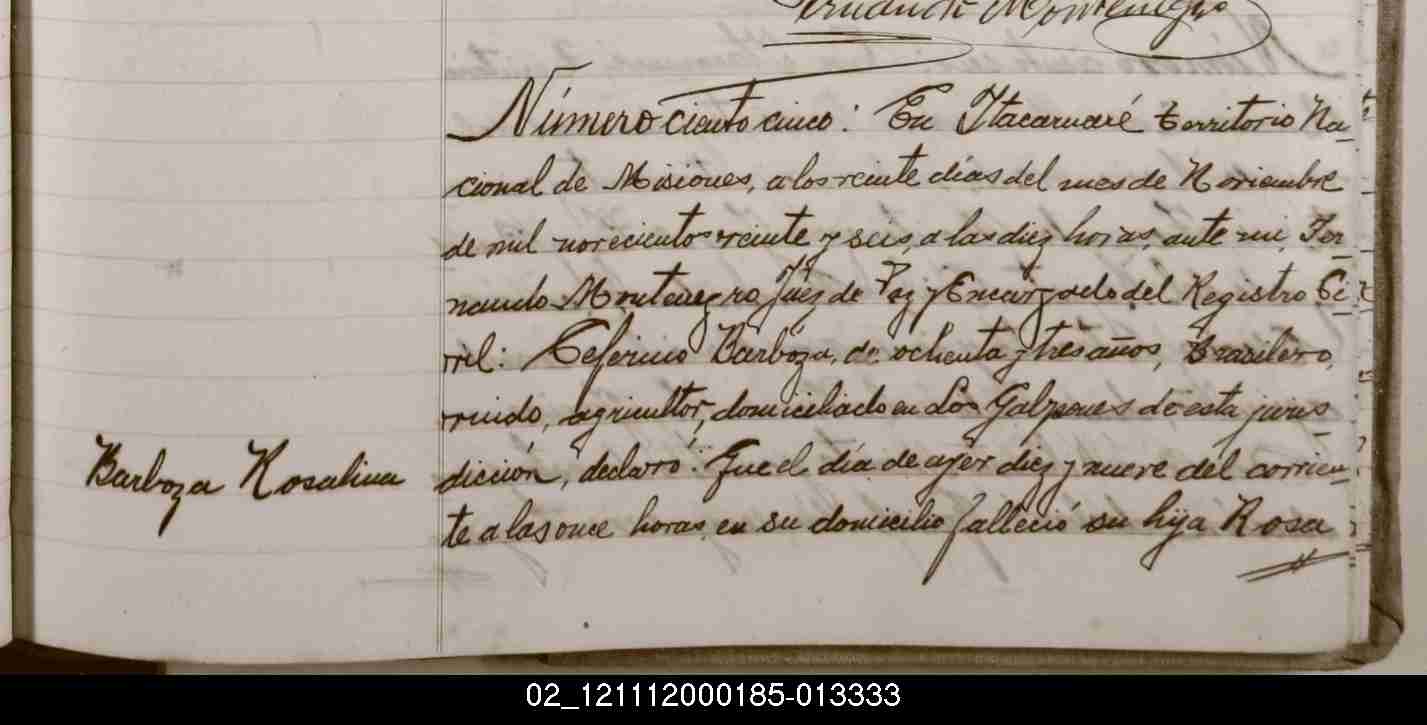 Fernando Montenegro
Número ciento cinco: En Itacaruaré territorio Na-
cional de Misiones, a los veinte días del mes de Noviembre
de mil novecientos veinte y seis, a las diez horas, ante mi, Fer-
nando Montenegro Juez de Paz y Encargado del Registro Ci-
vil: Ceferino Barboza, de ochenta y tres años, Brasilero,
viudo, agricultor, domiciliado en Los Galpones de esta juris-
dicción, declaró: Que el día de ayer diez y nueve del corrien-
te a las once horas, en su domicilio falleció su hija Rosa
Barboza Rosalina
02_121112000185-013333